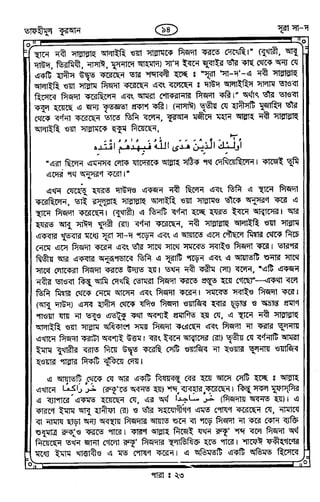 তাফহীমুল কুরআন
৯৪
সূরা সা-দ
স্থানে নবী সাল্লাল্লাহু আলাইহি ওয়া সাল্লামকে সিজদা করতে দেখেছি।" (বুখারী, আবু
দাউদ, তিরমিযী, নাসাঈ, মুসনাদে আহমাদ) সা'দ ইবনে জুবাইর তাঁর কাছ থেকে অন্য যে
একটি হাদীস উদ্ধৃত করেছেন তার শব্দাবলী হচ্ছে : "সূরা 'সা-দ'-এ নবী সাল্লাল্লাহু
আলাইহি ওয়া সাল্লাম সিজদা করেছেন এবং বলেছেন : দাউদ আলাইহিস সালাম তাওবা
হিসেবে সিজদা করেছিলেন এবং আমরা শোকরানার সিজদা করি।" অর্থাৎ তাঁর তাওবা
কবুল হয়েছে এ জন্য কৃতজ্ঞতা প্রকাশ করি। (নাসাঈ) তৃতীয় যে হাদীসটি মুজাহিদ তাঁর
থেকে বর্ণনা করেছেন তাতে তিনি বলেন, কুরআন মজীদে মহান আল্লাহ নবী সাল্লাল্লাহু
আলাইহি ওয়া সাল্লামকে হুকুম দিয়েছেন,
أُولَٰئِكَ الَّذِينَ هَدَى اللَّهُ فَبِهُدَاهُمُ اقْتَدِهْ
"এরা ছিলেন এমনসব লোক যাদেরকে আল্লাহ সঠিক পথ দেখিয়েছিলেন। কাজেই তুমি
এদের পথ অনুসরণ করো।"
এখন যেহেতু হযরত দাউদও একজন নবী ছিলেন এবং তিনি এ স্থানে সিজদা
করেছিলেন, তাই রসূলুল্লাহ সাল্লাল্লাহু আলাইহি ওয়া সাল্লামও তাঁকে অনুসরণ করে এ
স্থানে সিজদা করেছেন। (বুখারী) এ তিনটি বর্ণনা হচ্ছে হযরত ইবনে আব্বাসের। আর
হযরত আবু সাঈদ খুদরী (রা) বর্ণনা করেছেন, নবী সাল্লাল্লাহু আলাইহি ওয়া সাল্লাম
একবার খুতবার মধ্যে সূরা সা-দ পড়েন এবং এ আয়াতে এসে পৌঁছলে মিম্বার থেকে নিচে
নেমে এসে সিজদা করেন এবং তাঁর সাথে সাথে সমবেত সবাইও সিজদা করে। তারপর
দ্বিতীয় আর একবার অনুরূপভাবে তিনি এ সূরাটি পড়েন এবং এ আয়াতটি শুনার সাথে
সাথে লোকেরা সিজদা করতে উদ্যত হয়। তখন নবী করীম (সা) বলেন, "এটি একজন
নবীর তাওবা কিন্তু আমি দেখছি তোমরা সিজদা করতে প্রস্তুত হয়ে গেছো"—একথা বলে
তিনি মিম্বার থেকে নেমে আসেন এবং সিজদা করেন। সমবেত সবাইও সিজদা করে।
(আবু দাউদ) এসব হাদীস থেকে যদিও সিজদা ওয়াজিব হবার চূড়ান্ত ও অভ্রান্ত প্রমাণ
পাওয়া যায় না তবুও এতটুকু কথা অবশ্যই প্রমাণিত হয় যে, এ স্থানে নবী সাল্লাল্লাহু
আলাইহি ওয়া সাল্লাম অধিকাংশ সময় সিজদা করেছেন এবং সিজদা না করার তুলনায়
এখানে সিজদা করাটা অবশ্যই উত্তম। বরং ইবনে আব্বাসের (রা) তৃতীয় যে বর্ণনাটি আমরা
ইমাম বুখারীর বরাত দিয়ে উদ্ধৃত করেছি সেটি ওয়াজিব না হওয়ার তুলনায় ওয়াজিব
হওয়ার পাল্লার দিকটি ঝুঁকিয়ে দেয়।
এ আয়াতটি থেকে যে আর একটি বিষয়বস্তু বের হয়ে আসে সেটি হচ্ছে : আল্লাহ
এখানে خَرَّ رَاكِعًا (রুকূ'তে অবনত হয়) শব্দ ব্যবহার করেছেন। কিন্তু সকল মুফাসসির
এ ব্যাপারে একমত হয়েছেন যে, এর অর্থ خَرَّ سَاجِدًا (সিজদায় অবনত হয়)। এ
কারণে ইমাম আবু হানীফা (র) ও তাঁর সহযোগীগণ এমত পোষণ করেছেন যে, নামাযে
বা নামায ছাড়া অন্য অবস্থায় সিজদার আয়াত শুনে বা পড়ে সিজদা না করে কোন ব্যক্তি
শুধুমাত্র রুকূ'ও করতে পারে। কারণ আল্লাহ নিজেই যখন রুকূ' শব্দ বলে সিজদা অর্থ
নিয়েছেন তখন জানা গেলো রুকূ' সিজদার স্থলাভিষিক্ত হতে পারে। শাফেঈ ফকীহগণের
মধ্যে ইমাম খাত্তাবীও এ মত পোষণ করেন। এ অভিমতটি একটি অভিমত হিসেবে
পারা : ২৩